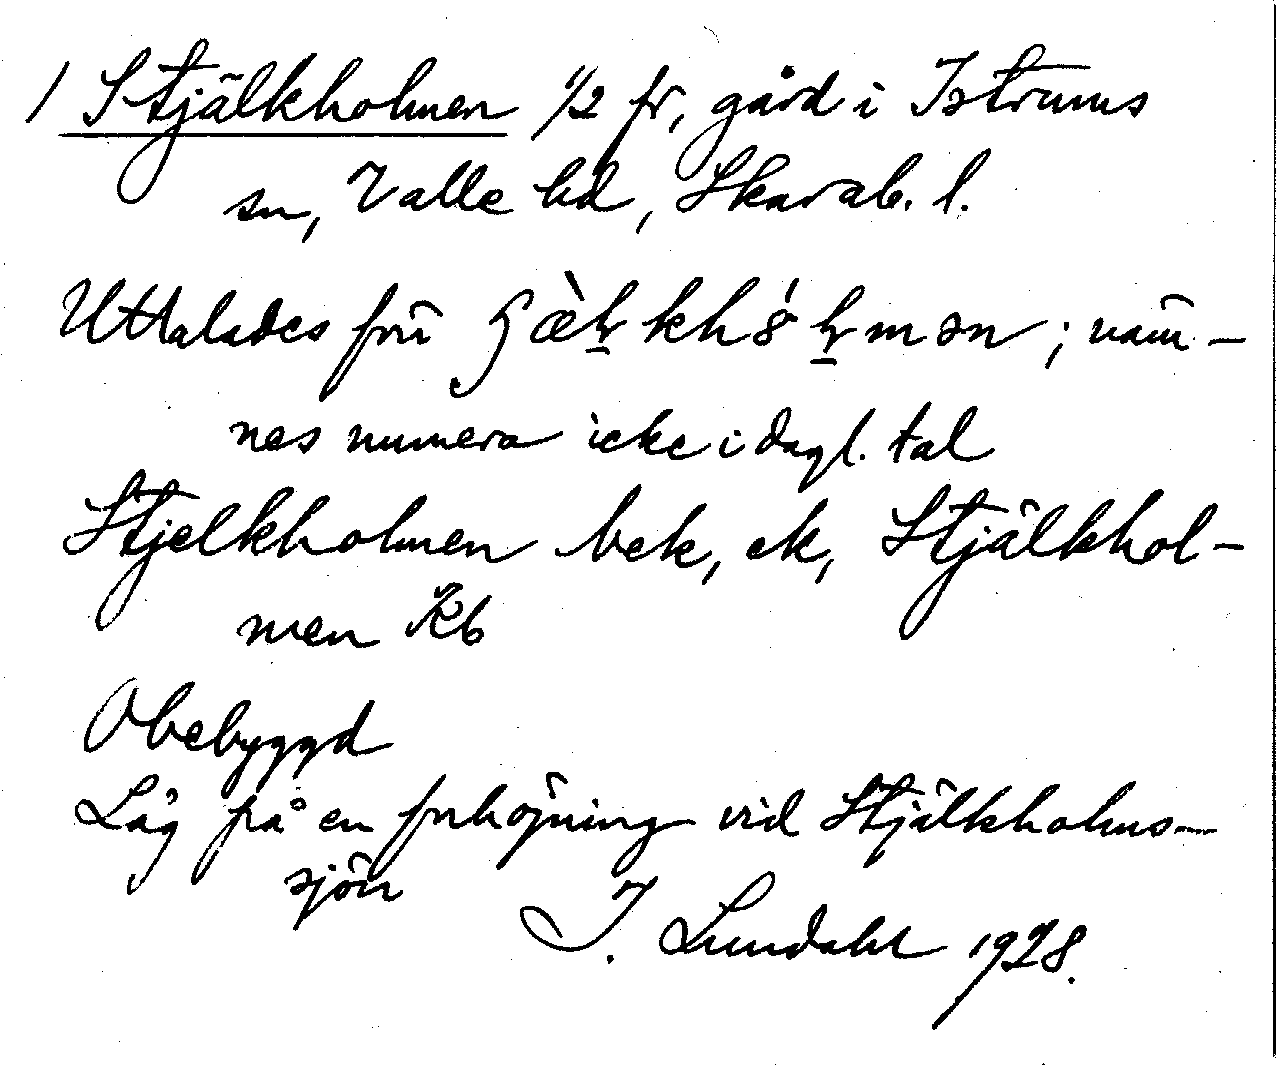 1 Stjälkholmen 1/2 fr, gård i Istrums
sn, Valle hd, Skarab. l.
Uttalades förr; näm-
nes numera icke i dagl. tal
Stjelkholmen bek, ek, Stjälkhol-
men Kb
Obebyggd
Låg på en förhöjning vid Stjälkholms-
sjön
I. Lundahl 1928.